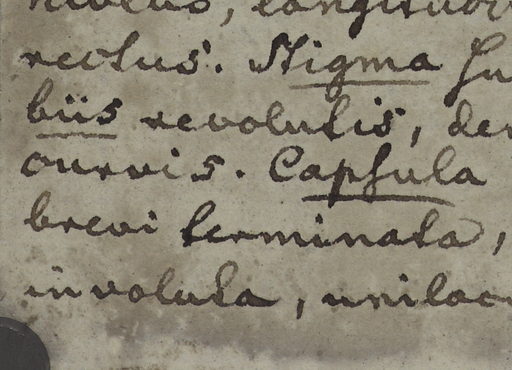 niveus, longitudi
rectus. Stigma su
biis revolutis, den
curvis. Capsula
brevi terminata,
involuta, unilocu